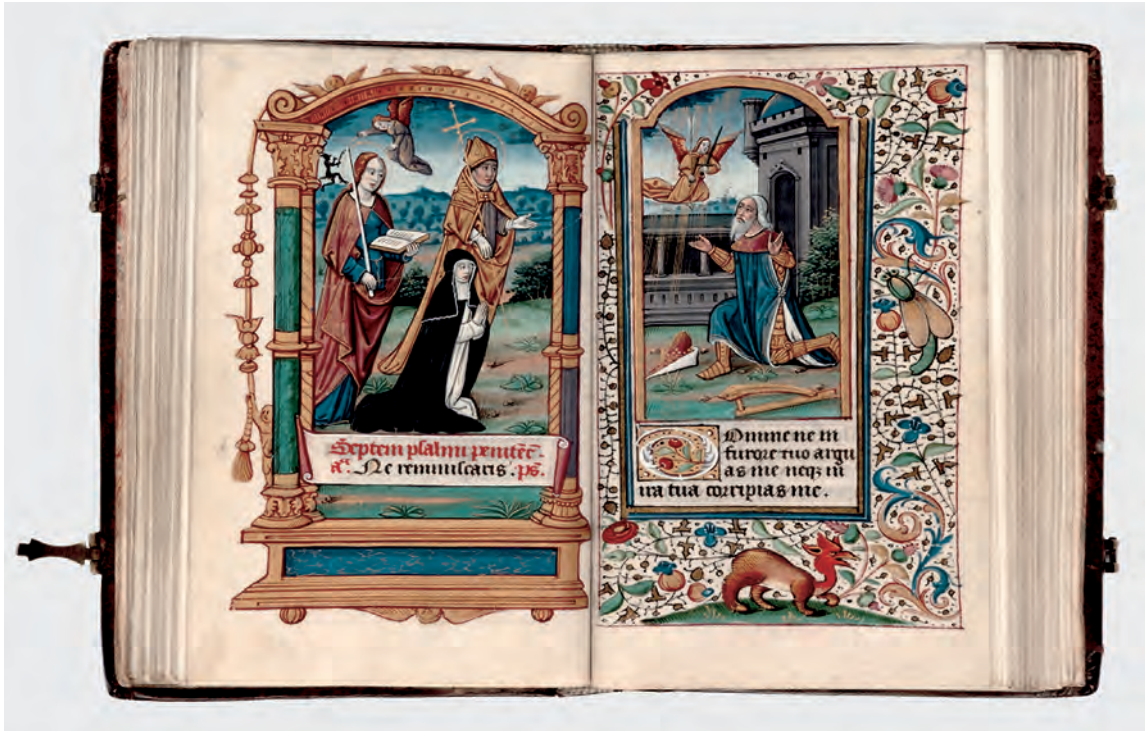 Septem psalmi penitēc̄.
añ. Ne reminiscaris. ps̄.
Domine ne in
furore tuo argu
as me neqꝫ in
ira tua corripias me.